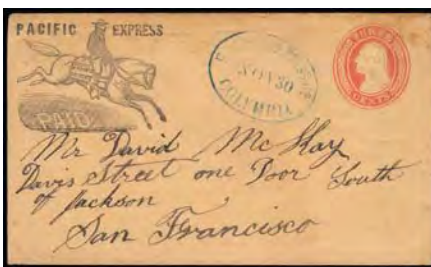 PACIFIC EXPRESS
THREE
CENTS
NOV 30
COLUMBIA
PAID
Mr David McKay
Davis Street one Door South
of Jackson
San Francisco